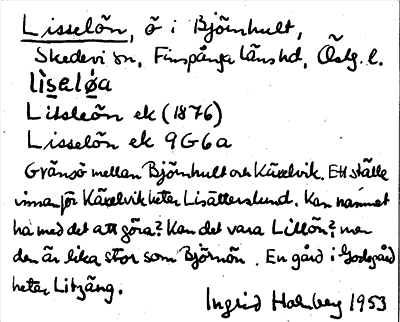 Lisselön, ö i Björnhult,
Skedevi sn, Finspånga läns hd, Östg. l.
lìselø̀a
Litsleön ek (1876)
Lisselön ek 9G6a
Gränsö mellan Björnhult och Käxelvik. Ett ställe
innanför Käxelvik heter Lisätterslund. Kan namnet
ha med det att göra? Kan det vara Lillön?, men
den är lika stor som Björnön. En gård i Godegård
heter Litzäng.
Ingrid Holmberg 1953